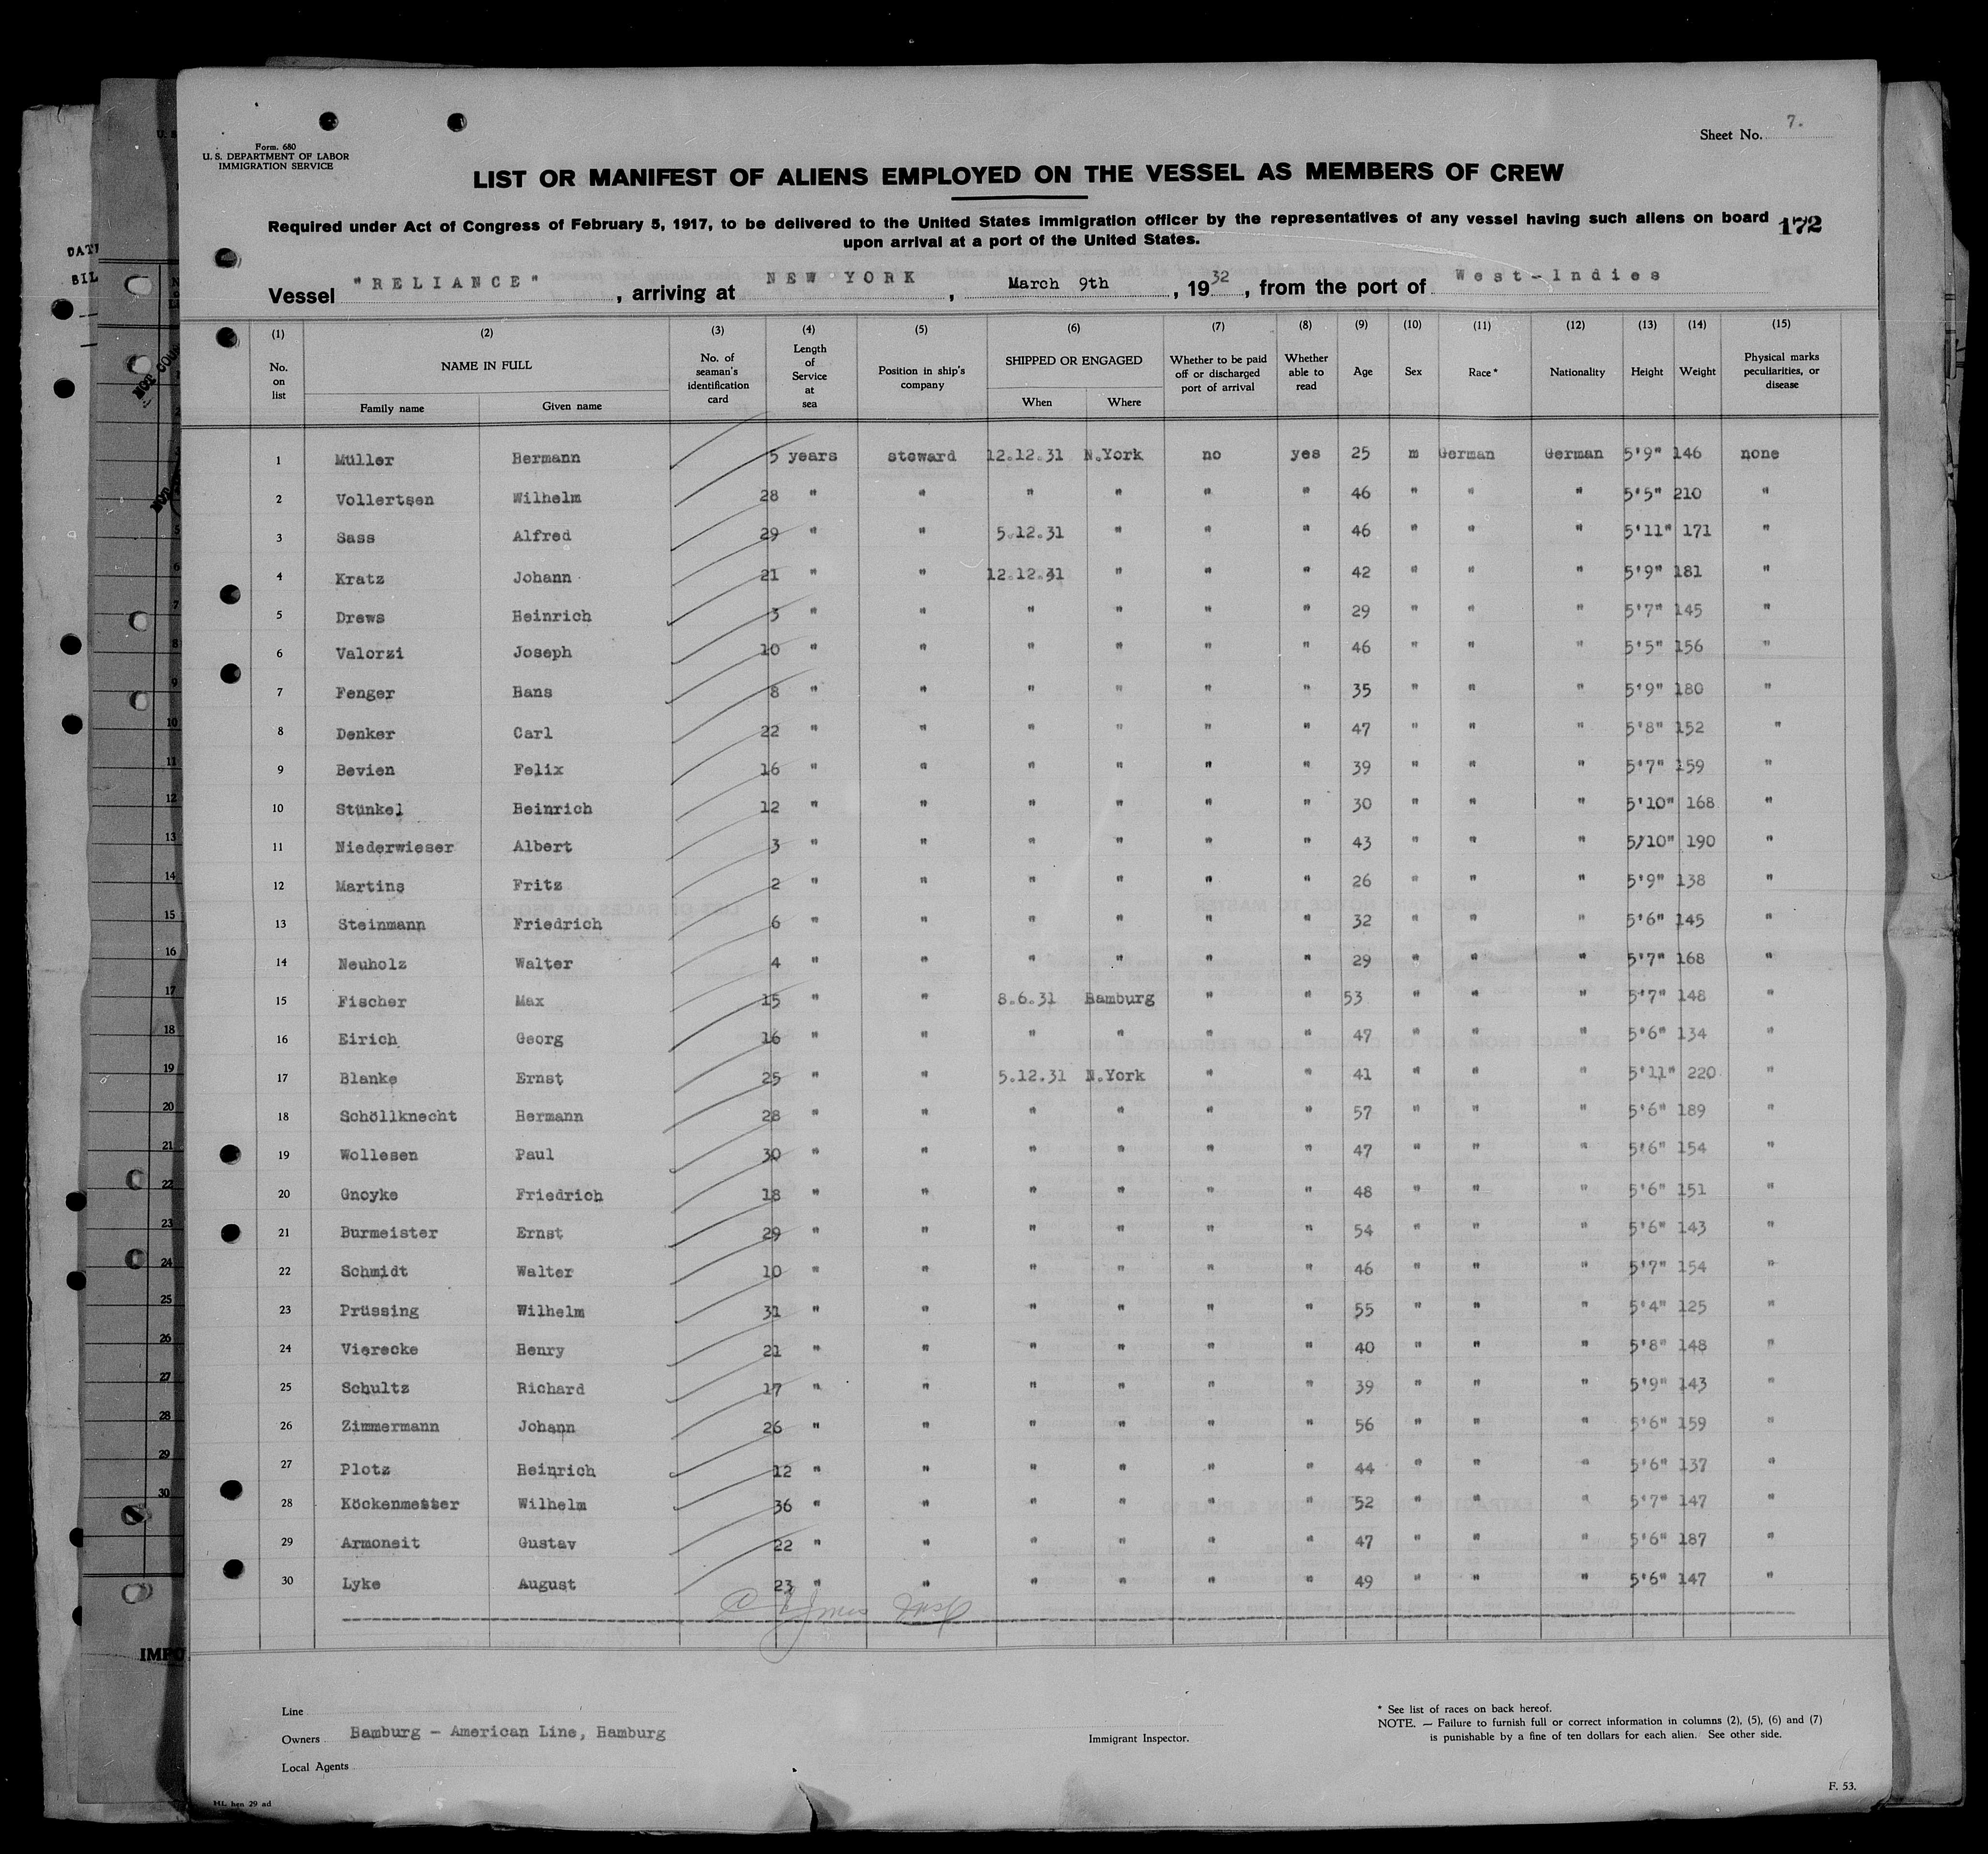 Form. 680
U. S. DEPARTMENT OF LABOR
IMMIGRATION SERVICE
Sheet No. 7.
LIST OR MANIFEST OF ALIENS EMPLOYED ON THE VESSEL AS MEMBERS OF CREW
Required under Act of Congress of February 5, 1917, to be delivered to the United States immigration officer by the representatives of any vessel having such aliens on board
upon arrival at a port of the United States.
172
Vessel "RELIANCE", arriving at NEW YORK, March 9th, 1932, from the port of West-Indies
(1) (2) (3) (4) (5) (6) (7) (8) (9) (10) (11) (12) (13) (14) (15)
No. on list NAME IN FULL Family name Given name No. of seaman's identification card Length of Service at sea Position in ship's company SHIPPED OR ENGAGED When Where Whether to be paid off or discharged port of arrival Whether able to read Age Sex Race* Nationality Height Weight Physical marks peculiarities, or disease
1 Müller Hermann 5 years steward 12.12.31 N.York no yes 25 m German German 5'9" 146 none
2 Vollertsen Wilhelm 28 " " " " " " 46 " " " 5'5" 210 "
3 Sass Alfred 29 " " 5.12.31 " " " 46 " " " 5'11" 171 "
4 Kratz Johann 21 " " 12.12.31 " " " 42 " " " 5'9" 181 "
5 Drews Heinrich 3 " " " " " " 29 " " " 5'7" 145 "
6 Valorzi Joseph 10 " " " " " " 46 " " " 5'5" 156 "
7 Fenger Hans 8 " " " " " " 35 " " " 5'9" 180 "
8 Denker Carl 22 " " " " " " 47 " " " 5'8" 152 "
9 Bevien Felix 16 " " " " " " 39 " " " 5'7" 159 "
10 Stünkel Heinrich 12 " " " " " " 30 " " " 5'10" 168 "
11 Niederwieser Albert 3 " " " " " " 43 " " " 5'10" 190 "
12 Martins Fritz 2 " " " " " " 26 " " " 5'9" 138 "
13 Steinmann Friedrich 6 " " " " " " 32 " " " 5'6" 145 "
14 Neuholz Walter 4 " " " " " " 29 " " " 5'7" 168 "
15 Fischer Max 15 " " 8.6.31 Hamburg " " 53 " " " 5'7" 148 "
16 Eirich Georg 16 " " " " " " 47 " " " 5'6" 134 "
17 Blanke Ernst 25 " " 5.12.31 N.York " " 41 " " " 5'11" 220 "
18 Schöllknecht Hermann 28 " " " " " " 57 " " " 5'6" 189 "
19 Wollesen Paul 30 " " " " " " 47 " " " 5'6" 154 "
20 Gnoyke Friedrich 18 " " " " " " 48 " " " 5'6" 151 "
21 Burmeister Ernst 29 " " " " " " 54 " " " 5'6" 143 "
22 Schmidt Walter 10 " " " " " " 46 " " " 5'7" 154 "
23 Prüssing Wilhelm 31 " " " " " " 55 " " " 5'4" 125 "
24 Vierecke Henry 21 " " " " " " 40 " " " 5'8" 148 "
25 Schultz Richard 17 " " " " " " 39 " " " 5'9" 143 "
26 Zimmermann Johann 26 " " " " " " 56 " " " 5'6" 159 "
27 Plotz Heinrich 12 " " " " " " 44 " " " 5'6" 137 "
28 Köckenmester Wilhelm 36 " " " " " " 52 " " " 5'7" 147 "
29 Armoneit Gustav 22 " " " " " " 47 " " " 5'6" 187 "
30 Lyke August 23 " " " " " " 49 " " " 5'6" 147 "
Line
Owners Hamburg - American Line, Hamburg
Local Agents
Immigrant Inspector.
* See list of races on back hereof.
NOTE. — Failure to furnish full or correct information in columns (2), (5), (6) and (7)
is punishable by a fine of ten dollars for each alien. See other side.
F. 53.